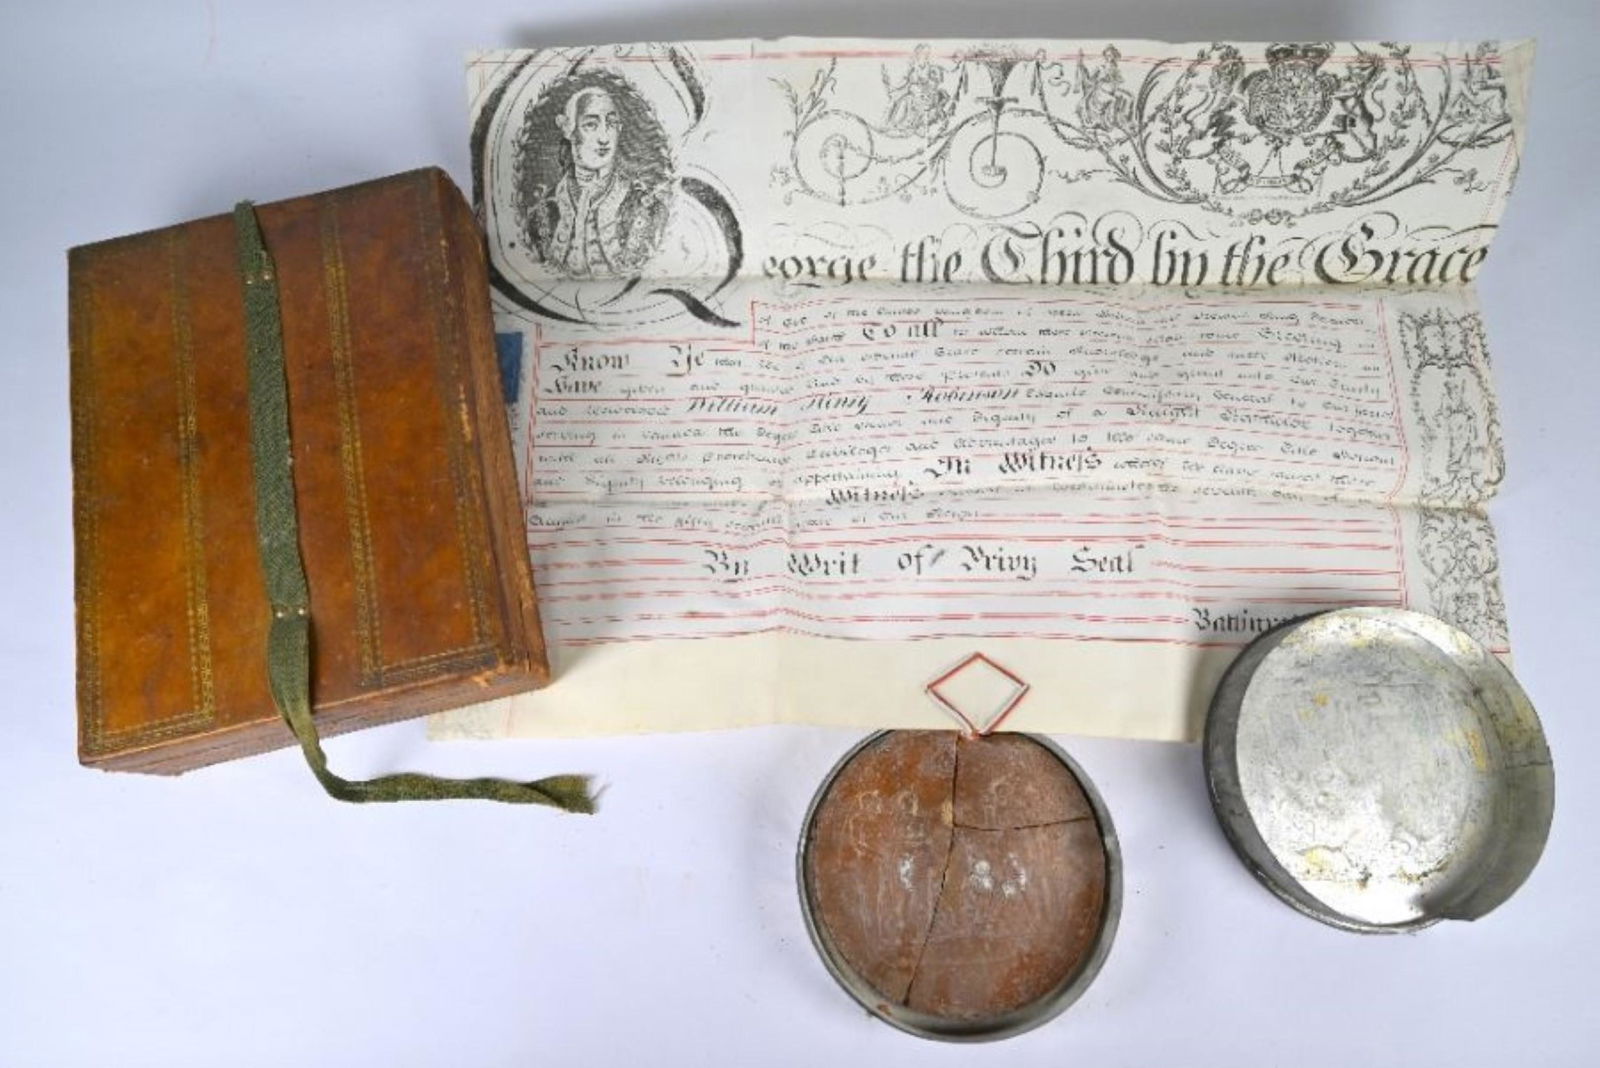 George the Third by the Grace
of God of the United Kingdom of Great Britain and Ireland King Defender
of the Faith To all to whom these presents shall come Greeting
Know Ye that We of our especial Grace certain knowledge and mere Motion
Have given and granted and by these presents Do give and grant unto our trusty
and William Henry Robinson Esquire Commissary General to our forces
serving in Canada the Degree Title Honor and Dignity of a Knight Bachelor together
with all Rights Privileges and Advantages to the same Degree Title Honour
and Dignity belonging or appertaining In Witness whereof We have caused these
Witness at Westminster the seventh day of
August in the fifty seventh year of Our Reign
By Writ of Privy Seal